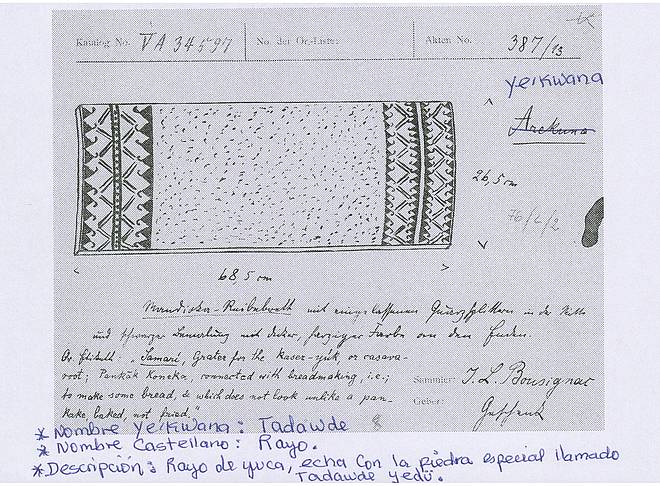 Katalog No. VA 34597 No. der Or.-Liste: Akten No. 387/13
yeikwana
Arekuna
26,5 cm
76/2/2
68,5 cm
Mandioka-Reibebrett mit eingelassenen Quarzsplittern in der Mitte
und schwarzer Bemalung mit dicker, harziger Farbe an den Enden.
Or. Etikett: "Samari, Grater for the Kaser-yúk, or casava-
root; Pankúk Koneka, connected with breadmaking, i.e.;
to make some bread, & which does not look unlike a pan-
kake, baked, not fried."
Sammler: I. L. Bousignac
Geber: Geschenk
8
* Nombre Yeikwana: Tadawde
* Nombre Castellano: Rayo.
* Descripción: Rayo de yuca, echa con la piedra especial llamado
Tadawde yedü.